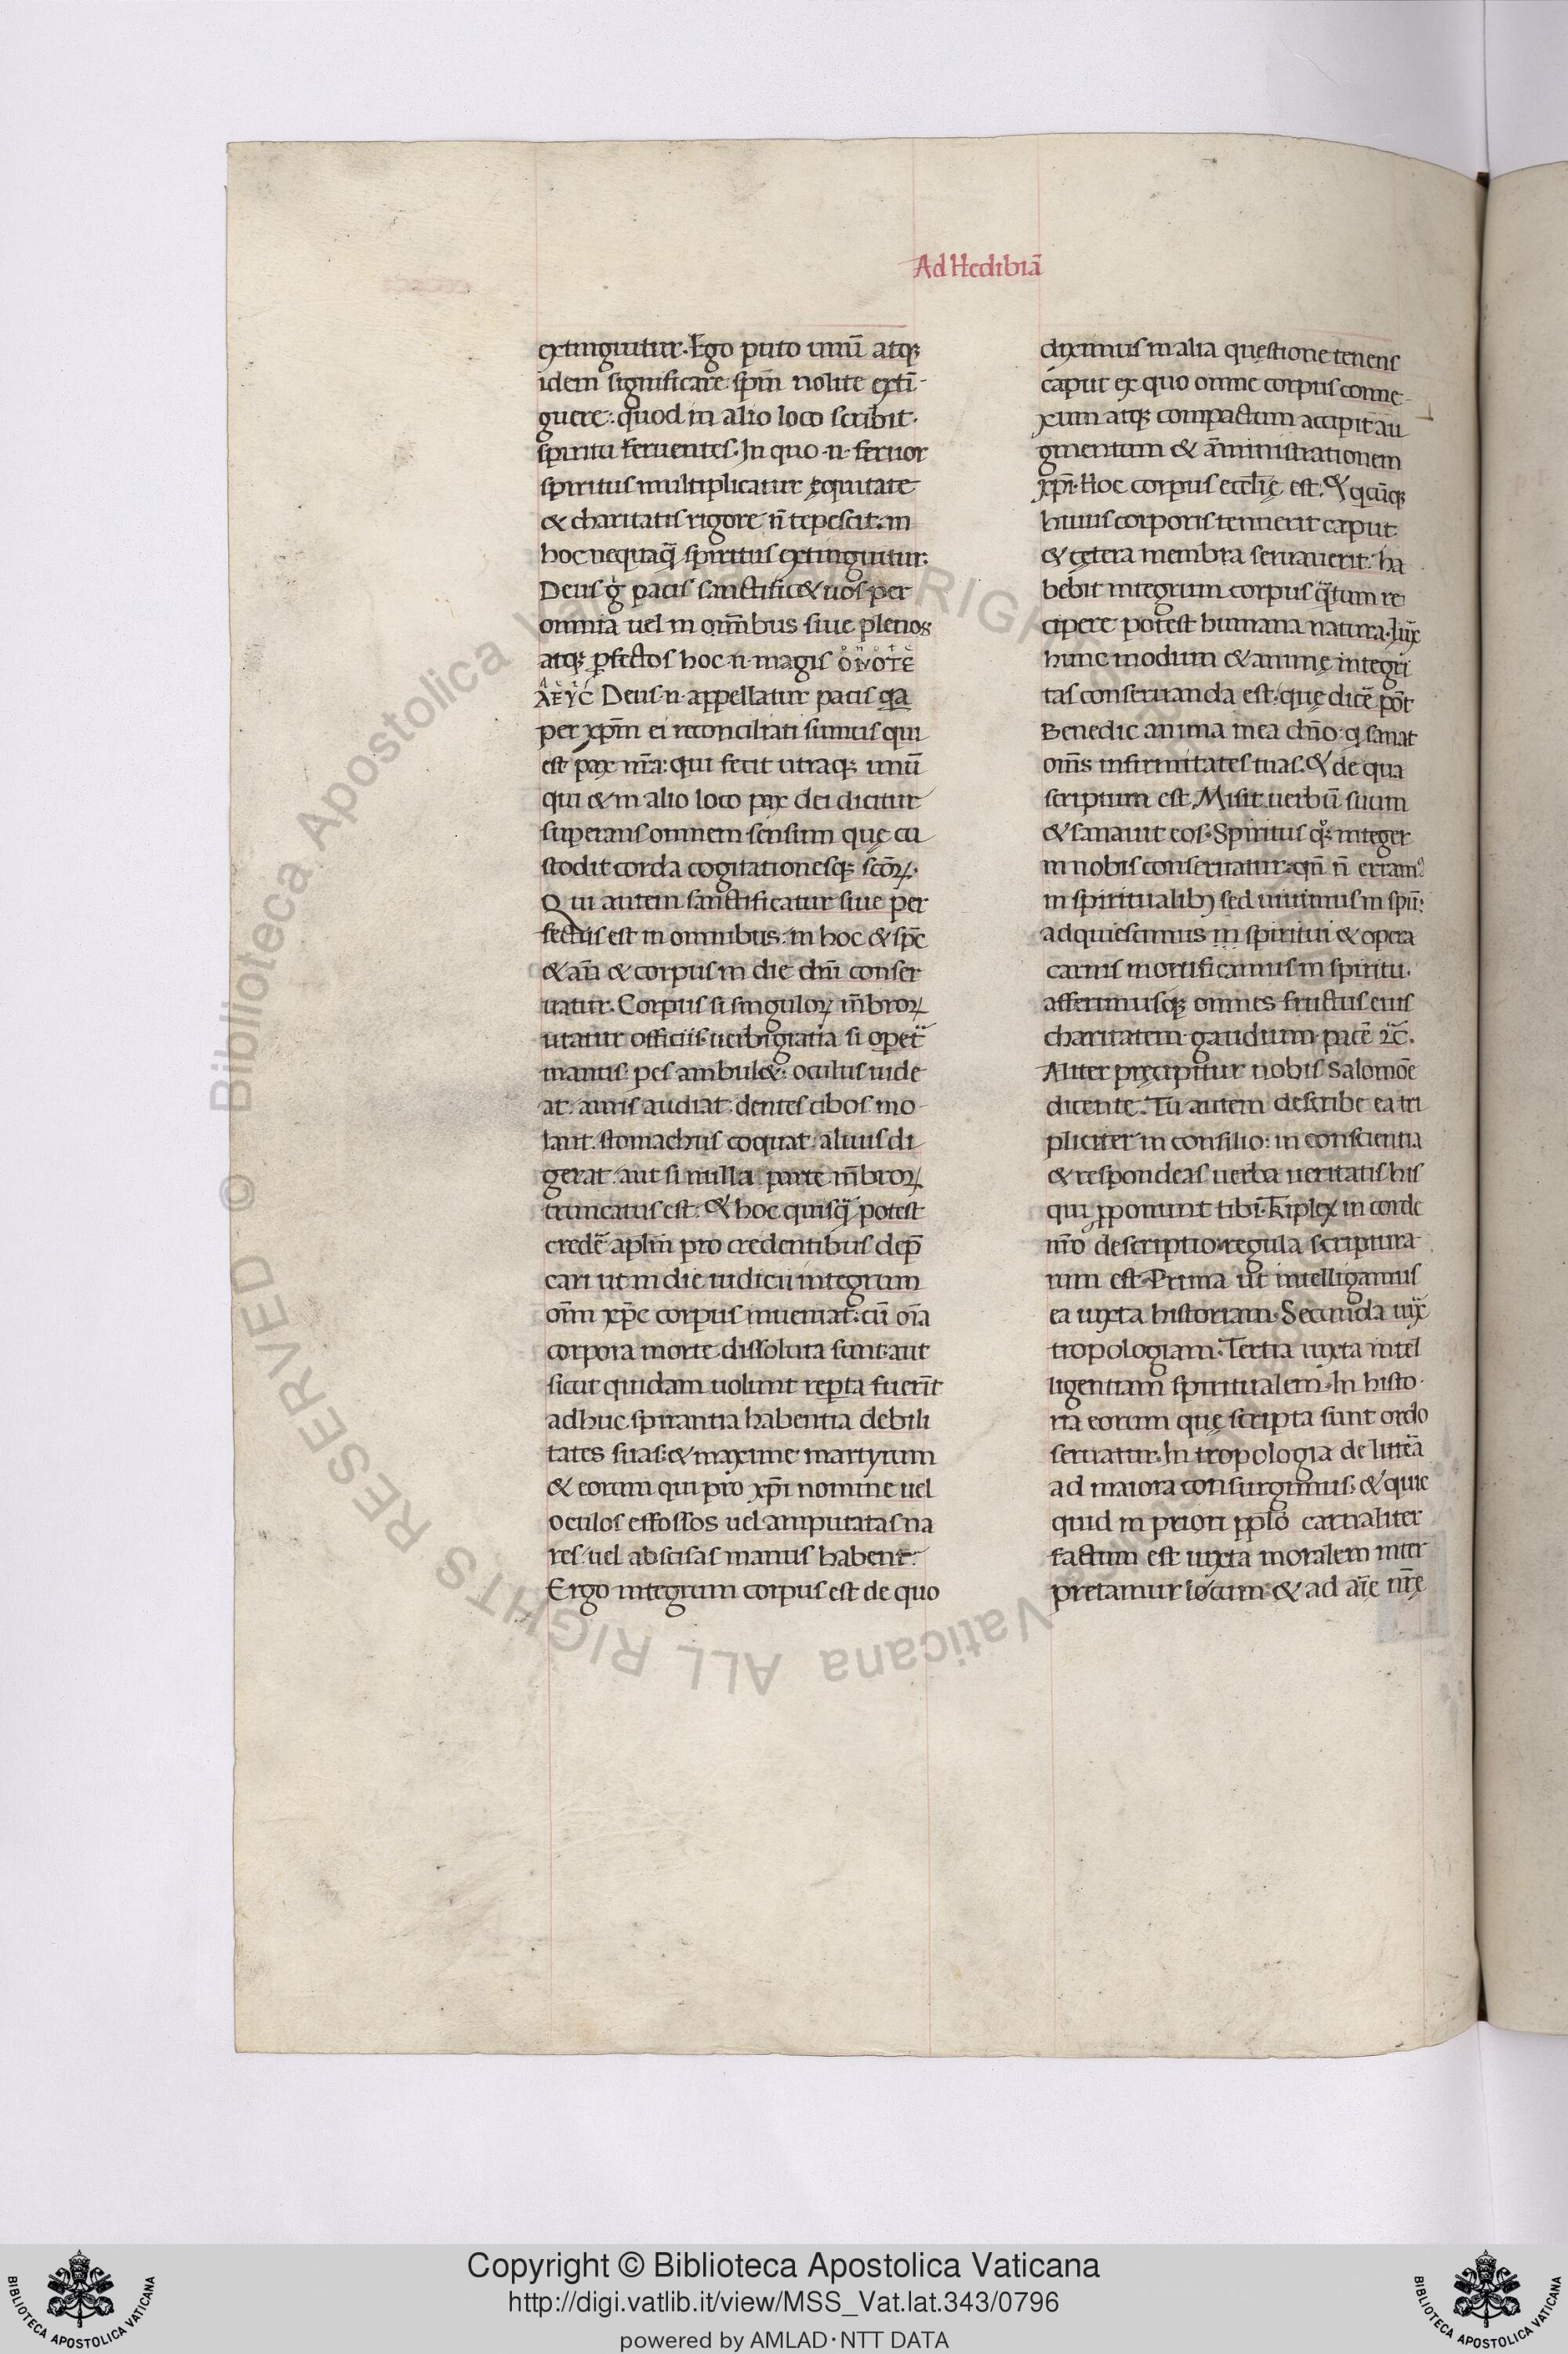 Ad Hedibiā
extinguitur. Ego puto unū atq;
idem significare: spm̄ nolite exti-
guere: quod in alio loco scribit.
spiritu feruentes. In quo .n. feruor
spiritus multiplicatur ęquitate
& charitatis rigore n̄ tepescit: in
hoc nequaq̄ spiritus extinguitur:
Deus g̊ pacis sanctific& uos per
omnia uel in om̄ibus siue plenos
atq; ꝑfectos hoc .n. magis
Deus .n. appellatur pacis qa
per xp̄m ei reconciliati sumus qui
est pax nr̄a: qui fecit utraq; unū
qui & in alio loco pax dei dicitur
superans omnem sensum quę cu
stodit corda cogitationesq; scōꝝ.
Qui autem sanctificatur siue per
fectus est in omnibus: in hoc & sp̄c
& an̄ & corpus in die dn̄i conser
uatur. Corpus si singuloꝝ m̄broꝝ
utatur officiis. uerbi gratia si operet̄
manus: pes ambul&: oculus uide
at: auris audiat: dentes cibos mo-
lant. stomachus coquat: aluus di
gerat: aut si nulla parte m̄broꝝ
truncatus est: & hoc quisq̄ potest
credē aplm̄ pro credentibus dep̄
cari ut in die iudicii integrum
om̄ xp̄c corpus inueniat: cū oīa
corpora morte dissoluta sunt: aut
sicut quidam uolunt reꝑta fuerīt
adhuc spirantia habentia debili
tates suas: & maxime martyrum
& eorum qui pro xp̄i nomine uel
oculos effossos uel amputatas na
res: uel abscisas manus habent:
Ergo integrum corpus est de quo
diximus in alia quęstione tenens
caput ex quo omne corpus conne-
xum atq; compactum accipit au
gmentum & āministrationem
xp̄i. Hoc corpus eccl̄ię est: & qcūq;
huius corporis tenuerit caput
& cętera membra seruauerit: ha
bebit integrum corpus q̄tum re
cipere potest humana natura. Iux̄
hunc modum & animę integri
tas conseruanda est: quę dicē pōt
Benedic anima mea dn̄o: q sanat
om̄s infirmitates tuas. & de qua
scriptum est, Misit uerbū suum
& sanauit eos. Spiritus q̊; integer
in nobis conseruatur: qn̄ n̄ erram9
in spiritualib; sed uiuimus in spū:
adquiescimus in spiritui & opera
carnis mortificamus in spiritu.
afferimusq; omnes fructus eius
charitatem gaudium pacē ⁊c̄.
Aliter pręcipitur nobis Salomōe
dicente. Tu autem describe ea tri
pliciter in consilio: in conscientia
& respondeas uerba ueritatis his
qui ꝓponunt tibi. Triplex in corde
nr̄o descriptio regula scriptura
rum est. Prima ut intelligamus
ea iuxta historiam. Secunda iux̄
tropologiam. Tertia iuxta intel
ligentiam spiritualem. In histo-
ria eorum quę scripta sunt ordo
seruatur. In tropologia de littēa
ad maiora consurgimus: & quic
quid in priori pplō carnaliter
factum est iuxta moralem inter
pretamur locum: & ad aīe nr̄ę
Copyright © Biblioteca Apostolica Vaticana
http://digi.vatlib.it/view/MSS_Vat.lat.343/0796
powered by AMLAD·NTT DATA
BIBLIOTECA APOSTOLICA VATICANA
BIBLIOTECA APOSTOLICA VATICANA
© Biblioteca Apostolica Vaticana ALL RIGHTS RESERVED